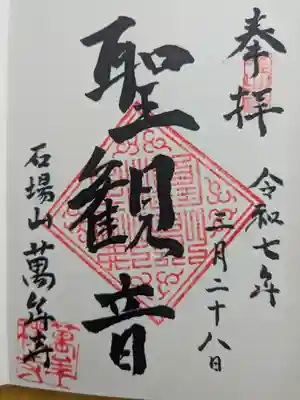 奉拝
令和七年
三月二十八日
聖観音
石場山
萬年寺